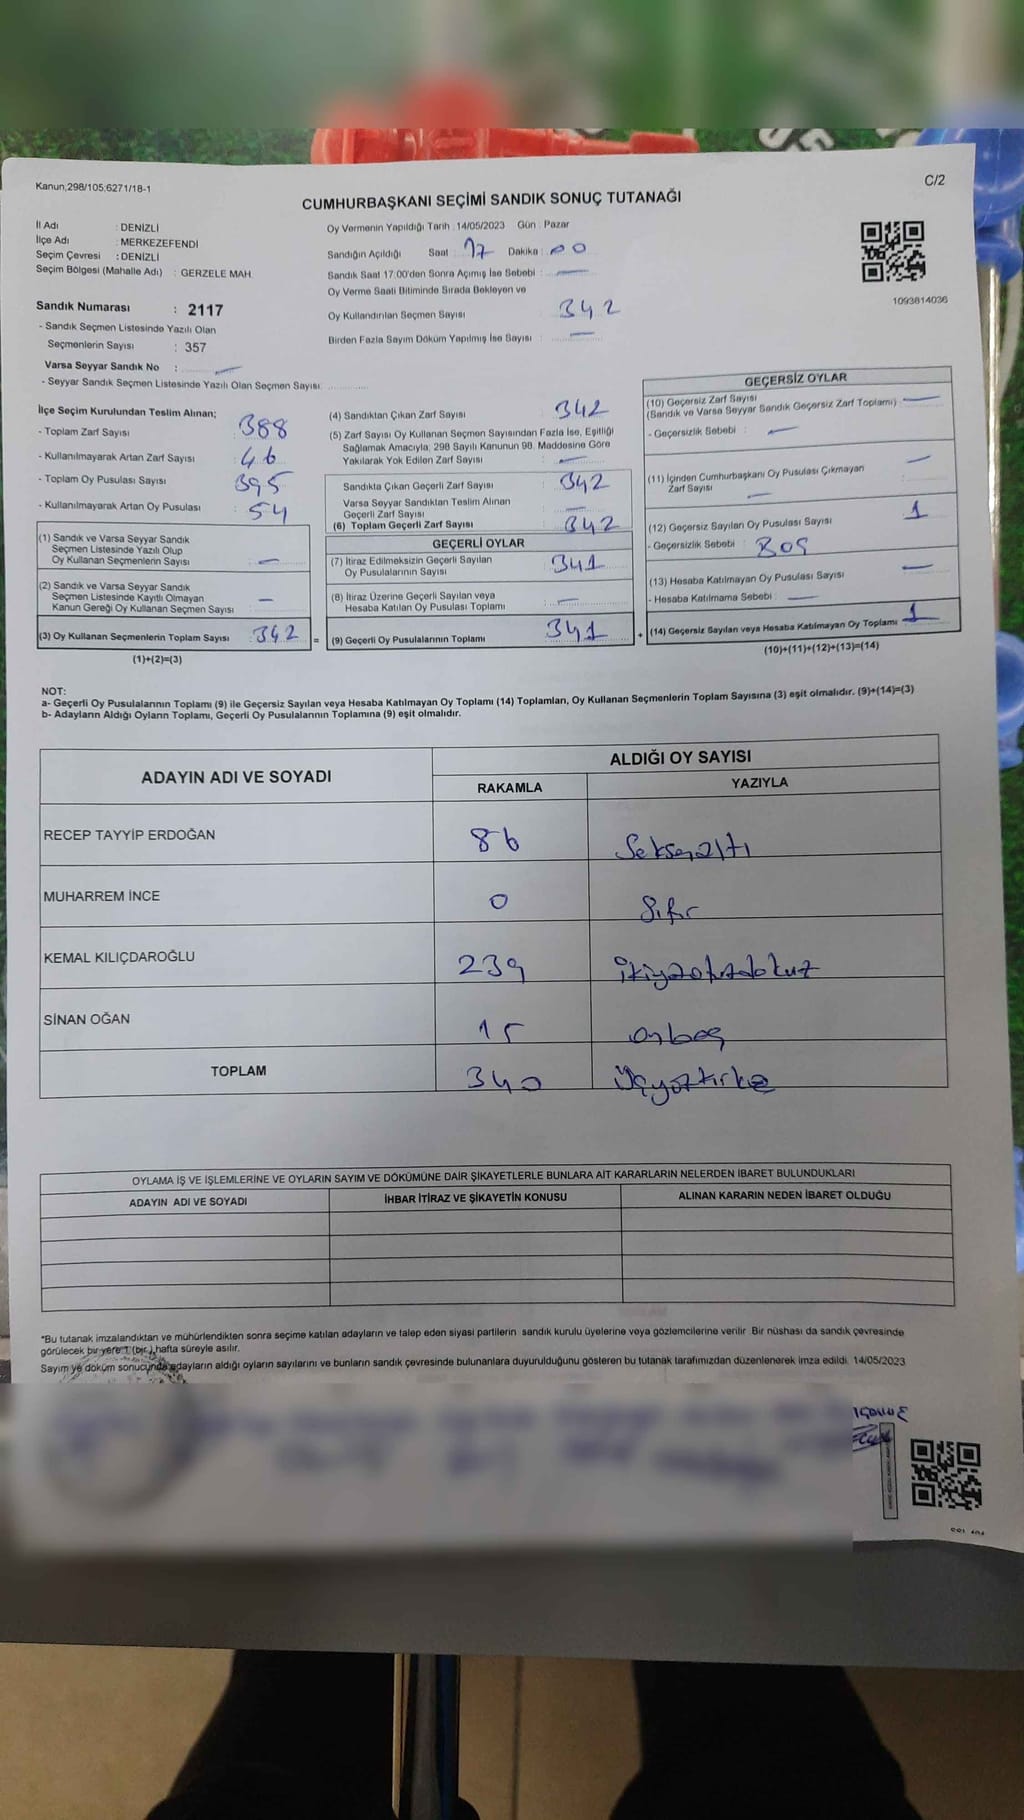 Kanun,298/105;6271/18-1
C/2
CUMHURBAŞKANI SEÇİMİ SANDIK SONUÇ TUTANAĞI
İl Adı : DENİZLİ
İlçe Adı : MERKEZEFENDİ
Seçim Çevresi : DENİZLİ
Seçim Bölgesi (Mahalle Adı) : GERZELE MAH.
Sandık Numarası : 2117
- Sandık Seçmen Listesinde Yazılı Olan
Seçmenlerin Sayısı : 357
Varsa Seyyar Sandık No : —
- Seyyar Sandık Seçmen Listesinde Yazılı Olan Seçmen Sayısı:
Oy Vermenin Yapıldığı Tarih : 14/05/2023 Gün : Pazar
Sandığın Açıldığı Saat : 17 Dakika : 00
Sandık Saat 17.00'den Sonra Açılmış İse Sebebi : —
Oy Verme Saati Bitiminde Sırada Bekleyen ve
Oy Kullandırılan Seçmen Sayısı 342
Birden Fazla Sayım Döküm Yapılmış İse Sayısı : —
1093814036
İlçe Seçim Kurulundan Teslim Alınan;
- Toplam Zarf Sayısı : 388
- Kullanılmayarak Artan Zarf Sayısı : 46
- Toplam Oy Pusulası Sayısı : 395
- Kullanılmayarak Artan Oy Pusulası : 54
(1) Sandık ve Varsa Seyyar Sandık
Seçmen Listesinde Yazılı Olup
Oy Kullanan Seçmenlerin Sayısı : —
(2) Sandık ve Varsa Seyyar Sandık
Seçmen Listesinde Kayıtlı Olmayan
Kanun Gereği Oy Kullanan Seçmen Sayısı : —
(3) Oy Kullanan Seçmenlerin Toplam Sayısı : 342 =
(1)+(2)=(3)
(4) Sandıktan Çıkan Zarf Sayısı 342
(5) Zarf Sayısı Oy Kullanan Seçmen Sayısından Fazla İse, Eşitliği
Sağlamak Amacıyla; 298 Sayılı Kanunun 98. Maddesine Göre
Yakılarak Yok Edilen Zarf Sayısı : —
Sandıkta Çıkan Geçerli Zarf Sayısı : 342
Varsa Seyyar Sandıktan Teslim Alınan
Geçerli Zarf Sayısı : —
(6) Toplam Geçerli Zarf Sayısı : 342
GEÇERLİ OYLAR
(7) İtiraz Edilmeksizin Geçerli Sayılan
Oy Pusulalarının Sayısı : 341
(8) İtiraz Üzerine Geçerli Sayılan veya
Hesaba Katılan Oy Pusulası Toplamı : —
(9) Geçerli Oy Pusulalarının Toplamı : 341 +
GEÇERSİZ OYLAR
(10) Geçersiz Zarf Sayısı
(Sandık ve Varsa Seyyar Sandık Geçersiz Zarf Toplamı) : —
- Geçersizlik Sebebi : —
(11) İçinden Cumhurbaşkanı Oy Pusulası Çıkmayan —
Zarf Sayısı —
(12) Geçersiz Sayılan Oy Pusulası Sayısı 1
- Geçersizlik Sebebi : BOŞ
(13) Hesaba Katılmayan Oy Pusulası Sayısı —
- Hesaba Katılmama Sebebi : —
(14) Geçersiz Sayılan veya Hesaba Katılmayan Oy Toplamı 1
(10)+(11)+(12)+(13)=(14)
NOT:
a- Geçerli Oy Pusulalarının Toplamı (9) ile Geçersiz Sayılan veya Hesaba Katılmayan Oy Toplamı (14) Toplamları, Oy Kullanan Seçmenlerin Toplam Sayısına (3) eşit olmalıdır. (9)+(14)=(3)
b- Adayların Aldığı Oyların Toplamı, Geçerli Oy Pusulalarının Toplamına (9) eşit olmalıdır.
ADAYIN ADI VE SOYADI ALDIĞI OY SAYISI
RAKAMLA YAZIYLA
RECEP TAYYİP ERDOĞAN 86 Seksenaltı
MUHARREM İNCE 0 Sıfır
KEMAL KILIÇDAROĞLU 239 İkiyüzotuzdokuz
SİNAN OĞAN 15 onbeş
TOPLAM 340 Üçyüzkırk
OYLAMA İŞ VE İŞLEMLERİNE VE OYLARIN SAYIM VE DÖKÜMÜNE DAİR ŞİKAYETLERLE BUNLARA AİT KARARLARIN NELERDEN İBARET BULUNDUKLARI
ADAYIN ADI VE SOYADI İHBAR İTİRAZ VE ŞİKAYETİN KONUSU ALINAN KARARIN NEDEN İBARET OLDUĞU
*Bu tutanak imzalandıktan ve mühürlendikten sonra seçime katılan adayların ve talep eden siyasi partilerin sandık kurulu üyelerine veya gözlemcilerine verilir. Bir nüshası da sandık çevresinde
görülecek bir yere 1 (bir) hafta süreyle asılır.
Sayım ve döküm sonucunda adayların aldığı oyların sayılarını ve bunların sandık çevresinde bulunanlara duyurulduğunu gösteren bu tutanak tarafımızdan düzenlenerek imza edildi. 14/05/2023